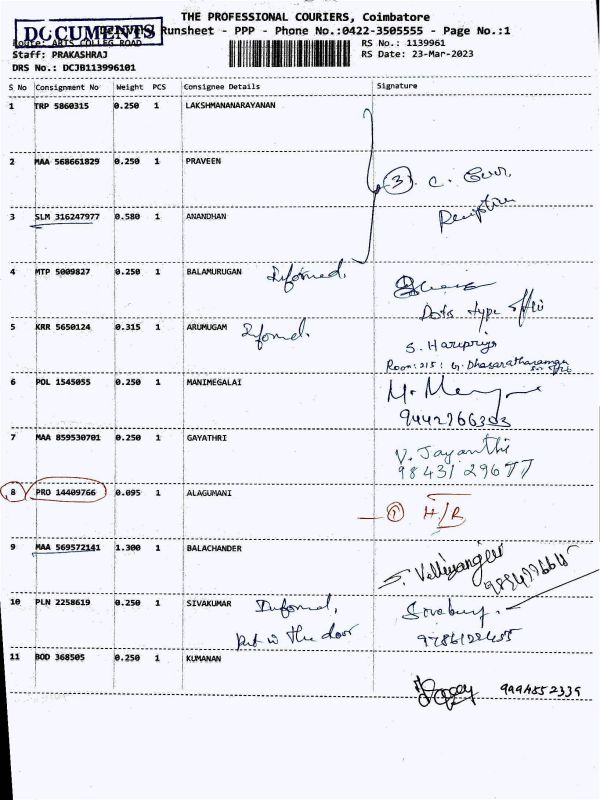 THE PROFESSIONAL COURIERS, Coimbatore
DOCUMENTS Runsheet - PPP - Phone No.:0422-3505555 - Page No.:1
Route: ARTS COLLEG ROAD RS No.: 1139961
Staff: PRAKASHRAJ RS Date: 23-Mar-2023
DRS No.: DCJB113996101
S No Consignment No Weight PCS Consignee Details Signature
1 TRP 5860315 0.250 1 LAKSHMANANARAYANAN
2 MAA 568661829 0.250 1 PRAVEEN
3 C.
3 SLM 316247977 0.580 1 ANANDHAN
4 MTP 5009827 0.250 1 BALAMURUGAN Informed.
type office
5 KRR 5650124 0.315 1 ARUMUGAM Informed.
S. Haripriya
Room: 215: G. Dhasaratharaman
6 POL 1545055 0.250 1 MANIMEGALAI
9442766303
7 MAA 859530701 0.250 1 GAYATHRI
V. Jayanthi
98431 29677
8 PRO 14409766 0.095 1 ALAGUMANI
H/R
9 MAA 569572141 1.300 1 BALACHANDER
S.
10 PLN 2258619 0.250 1 SIVAKUMAR Informed,
put in the door
11 BOD 368505 0.250 1 KUMANAN
9994852339